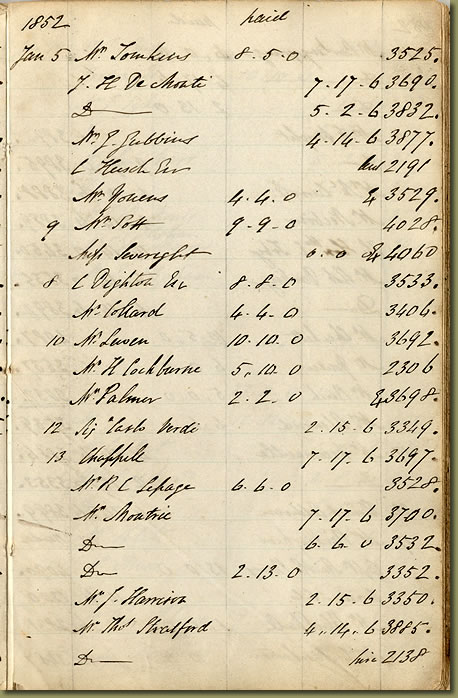 1852 paid
Jan 5 Mr Tomkins 8.5.0 3525.
J. H De Monti 7.17.6 3690.
Do 5.2.6 3832.
Mr J. Gubbins 4.14.6 3877.
C Husch Esr 2191
Mr Youens 4.4.0 & 3529.
9 Mr Sott 9.9.0 4028.
Miss Sevright 0.0 & 4060
8 C Dighton Esr 8.8.0 3533.
Mr Collard 4.4.0 3406.
10 Mr Leven 10.10.0 3692.
Mr H Cockburne 5.10.0 2306
Mr Palmer 2.2.0 & 3698.
12 Sig Carlo Verdi 2.15.6 3349.
13 Chappell 7.17.6 3697.
Mr R C Lepage 6.6.0 3528.
Mr Moutrie 7.17.6 3700.
Do 6.6.0 3532.
Do 2.13.0 3352.
Mr J. Harrison 2.15.6 3350.
Mr Thos Stratford 4.14.6 3885.
Do hire 2138